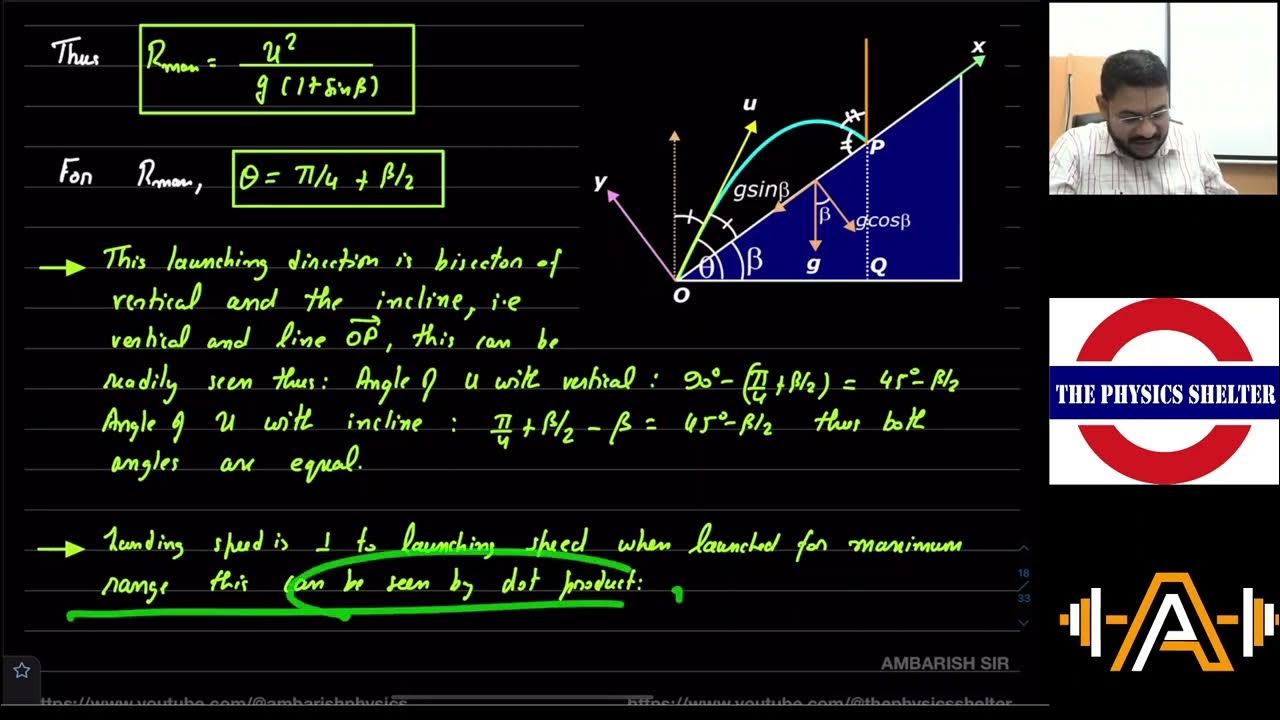 Thus Rmax = u² / g (1+sinβ)
For Rmax, θ = π/4 + β/2
→ This launching direction is bisector of
vertical and the incline, i.e
vertical and line OP, this can be
readily seen thus: Angle of u with vertical : 90° - (π/4 + β/2) = 45° - β/2
Angle of u with incline : π/4 + β/2 - β = 45° - β/2 thus both
angles are equal.
→ Landing speed is ⊥ to launching speed when launched for maximum
range this can be seen by dot product:
x
u
y
P
gsinβ
β
gcosβ
θ
β
g
Q
O
THE PHYSICS SHELTER
A
18
/
33
AMBARISH SIR
ttps://www.youtube.com/@ambarishphysics
https://www.youtube.com/@thephysicsshelter